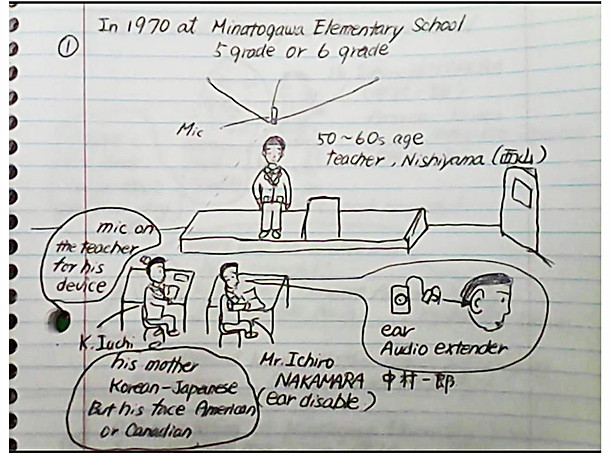 ①
In 1970 at Minatogawa Elementary School
5 grade or 6 grade
Mic
50~60s age
teacher, Nishiyama (西山)
mic on
the teacher
for his
device
K. Iuchi
his mother
Korean-Japanese
But his face American
or Canadian
Mr. Ichiro
NAKAMARA 中村一郎
(ear disable)
ear
Audio extender